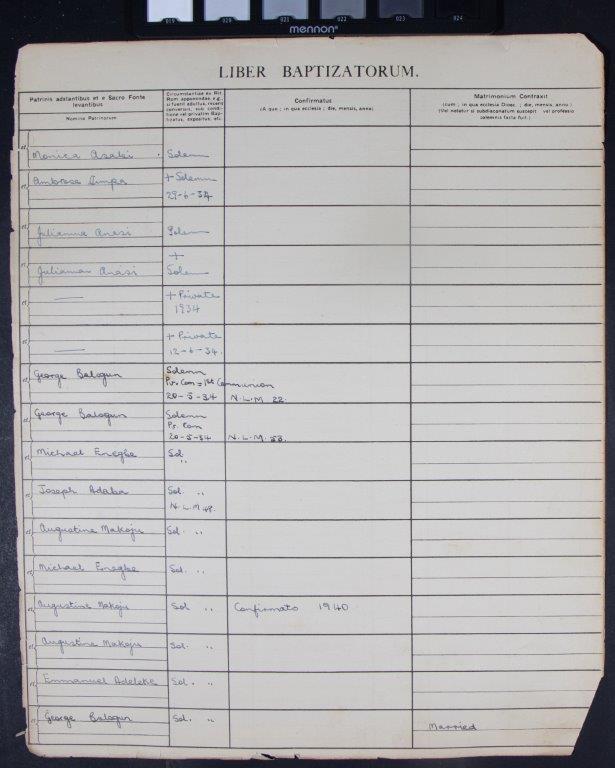 019 020 021 022 023 024
mennon
LIBER BAPTIZATORUM.
Patrinis adstantibus et e Sacro Fonte
levantibus
Nomina Patrinorum
Circumstantiae ex Rit
Rom apponendae e.g.,
si fuerit adultus, recens
conversis, sub condi-
tione vel privatim Bap-
tizatus, expositus, etc.
Confirmatus
(A quo ; in qua ecclesia ; die, mensis, anno)
Matrimonium Contraxit
(cum ; in qua ecclesia Dioec. ; die, mensis, anno)
(Vel notetur si subdiaconatum suscepit vel professio
solemnis facta fuit.)
et Monica Asabi Solemn
et Ambrose + Solemn
29-6-34
et Julianna Anasi Solemn
+
et Julianna Anasi Solem
et — + Private
1934
+ Private
et — 12-6-34.
et George Balogun Solemn
Pr. Com = 1st Communion
20-5-34 N.L.M 22.
et George Balogun Solemn
Pr. Com
20-5-34 N.L.M. 53.
et Michael Enegbe Sol.
"
et Joseph Adaba Sol. "
N.L.M 49.
et Augustine Makoju Sol. "
et Michael Enegbe Sol. "
et Augustine Makoju Sol " Confirmato 1940
et Augustine Makoju Sol. "
et Emmanuel Adeleke Sol. "
et George Balogun Sol. "
Married